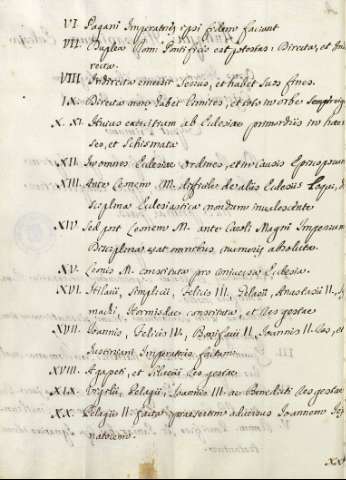 VI Pagani Imperatores ipsi fidem faciunt
VII. Duplex Romi Pontificis est potestas: Directa, et Indi
recta.
VIII Indirecta emicuit serius, et habet suos fines.
IX. Directa non habet limites, et toto in orbe semper viguit
X. XI. Huius exercitium ab Ecclesiae primordiis in haere
ses, et Schismata
XII. In omnes Ecclesiae ordines, et in Causis Episcoporum
XIII. Ante Leonem M. difficile de aliis Ecclesiis Loqui, di
sciplina Ecclesiastica nondum invalescente
XIV Sed post Leonem M. ante Caroli Magni Imperium
Disciplina erat omnibus numeris absoluta.
XV. Leonis M. constituta pro universa Ecclesia.
XVI. Hilarii, Simplicii, Felicis III, Gelasii, Anastasii II. Sym
machi, Hormisdae constituta, et res gestae
XVII. Joannis, Felicis IV, Bonifacii II, Joannis II. res, et
Justiniani Imperatoris factum.
XVIII. Agapeti, et Silverii res gestae
XIX. Vigilii, Pelagii, Joannis III. ac Benedicti res gestae
XX. Pelagii II. facta praesertim adversus Joannem Jeju
natorem.
XXI